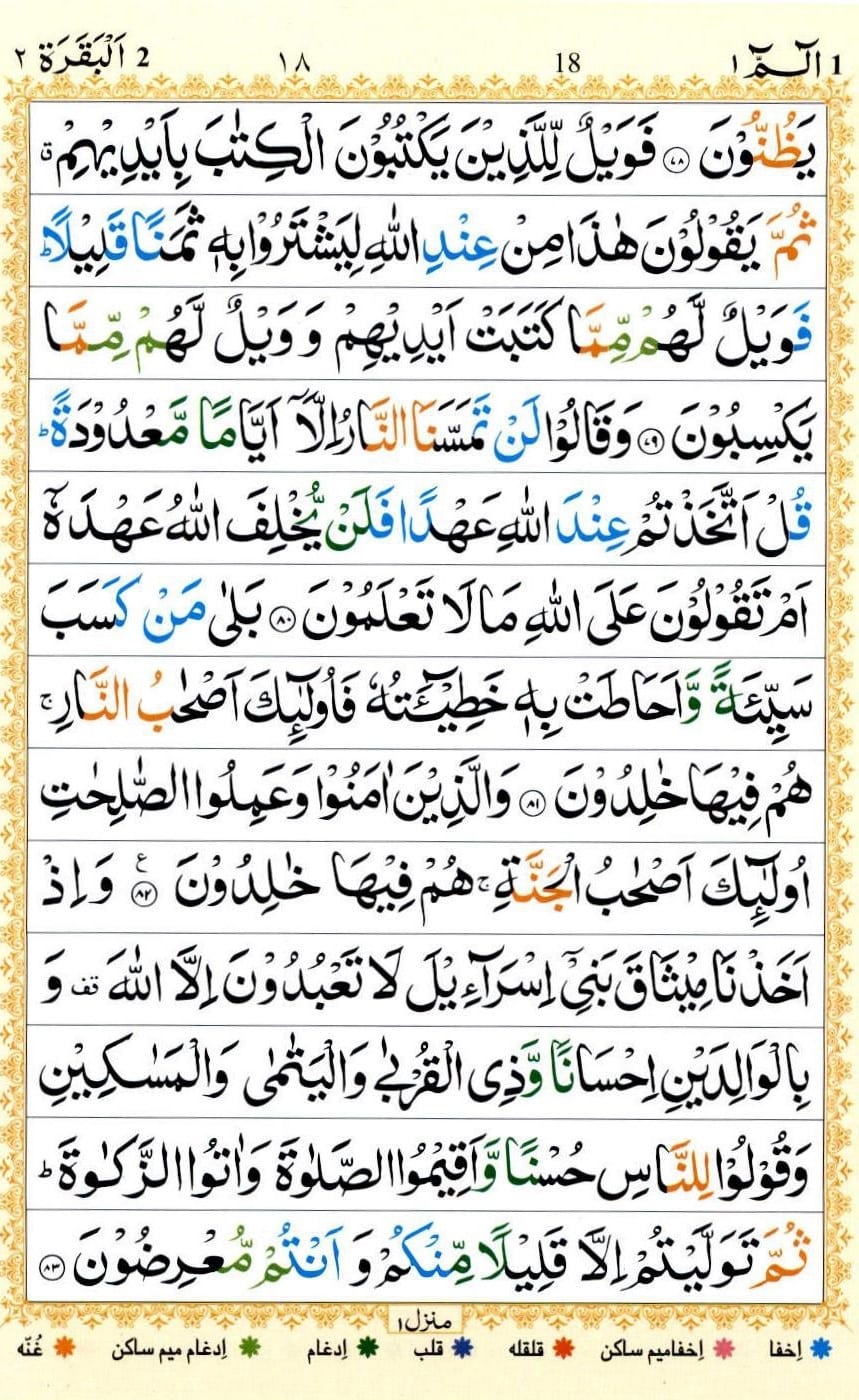 1 الٓمّٓ ١ 18 ١٨ 2 اَلْبَقَرَة ٢
يَظُنُّوْنَ ﴿٧٨﴾ فَوَيْلٌ لِّلَّذِيْنَ يَكْتُبُوْنَ الْكِتٰبَ بِاَيْدِيْهِمْ ۗق
ثُمَّ يَقُوْلُوْنَ هٰذَا مِنْ عِنْدِ اللّٰهِ لِيَشْتَرُوْا بِهٖ ثَمَنًا قَلِيْلًا ؕ
فَوَيْلٌ لَّهُمْ مِّمَّا كَتَبَتْ اَيْدِيْهِمْ وَ وَيْلٌ لَّهُمْ مِّمَّا
يَكْسِبُوْنَ ﴿٧٩﴾ وَقَالُوْا لَنْ تَمَسَّنَا النَّارُ اِلَّاۤ اَيَّامًا مَّعْدُوْدَةً ؕ
قُلْ اَتَّخَذْتُمْ عِنْدَ اللّٰهِ عَهْدًا فَلَنْ يُّخْلِفَ اللّٰهُ عَهْدَهٗۤ
اَمْ تَقُوْلُوْنَ عَلَى اللّٰهِ مَا لَا تَعْلَمُوْنَ ﴿٨٠﴾ بَلٰى مَنْ كَسَبَ
سَيِّئَةً وَّاَحَاطَتْ بِهٖ خَطِيْٓئَتُهٗ فَاُولٰٓئِكَ اَصْحٰبُ النَّارِ ۚ
هُمْ فِيْهَا خٰلِدُوْنَ ﴿٨١﴾ وَالَّذِيْنَ اٰمَنُوْا وَعَمِلُوا الصّٰلِحٰتِ
اُولٰٓئِكَ اَصْحٰبُ الْجَنَّةِ ۚ هُمْ فِيْهَا خٰلِدُوْنَ ﴿٨٢﴾ ع وَاِذْ
اَخَذْنَا مِيْثَاقَ بَنِيْۤ اِسْرَآءِيْلَ لَا تَعْبُدُوْنَ اِلَّا اللّٰهَ قف وَ
بِالْوَالِدَيْنِ اِحْسَانًا وَّذِى الْقُرْبٰى وَالْيَتٰمٰى وَالْمَسٰكِيْنِ
وَقُوْلُوْا لِلنَّاسِ حُسْنًا وَّاَقِيْمُوا الصَّلٰوةَ وَاٰتُوا الزَّكٰوةَ ؕ
ثُمَّ تَوَلَّيْتُمْ اِلَّا قَلِيْلًا مِّنْكُمْ وَ اَنْتُمْ مُّعْرِضُوْنَ ﴿٨٣﴾
منزل ١
اِخفا اِخفامیم ساکن قلقله قلب اِدغام اِدغام میم ساکن غُنّه